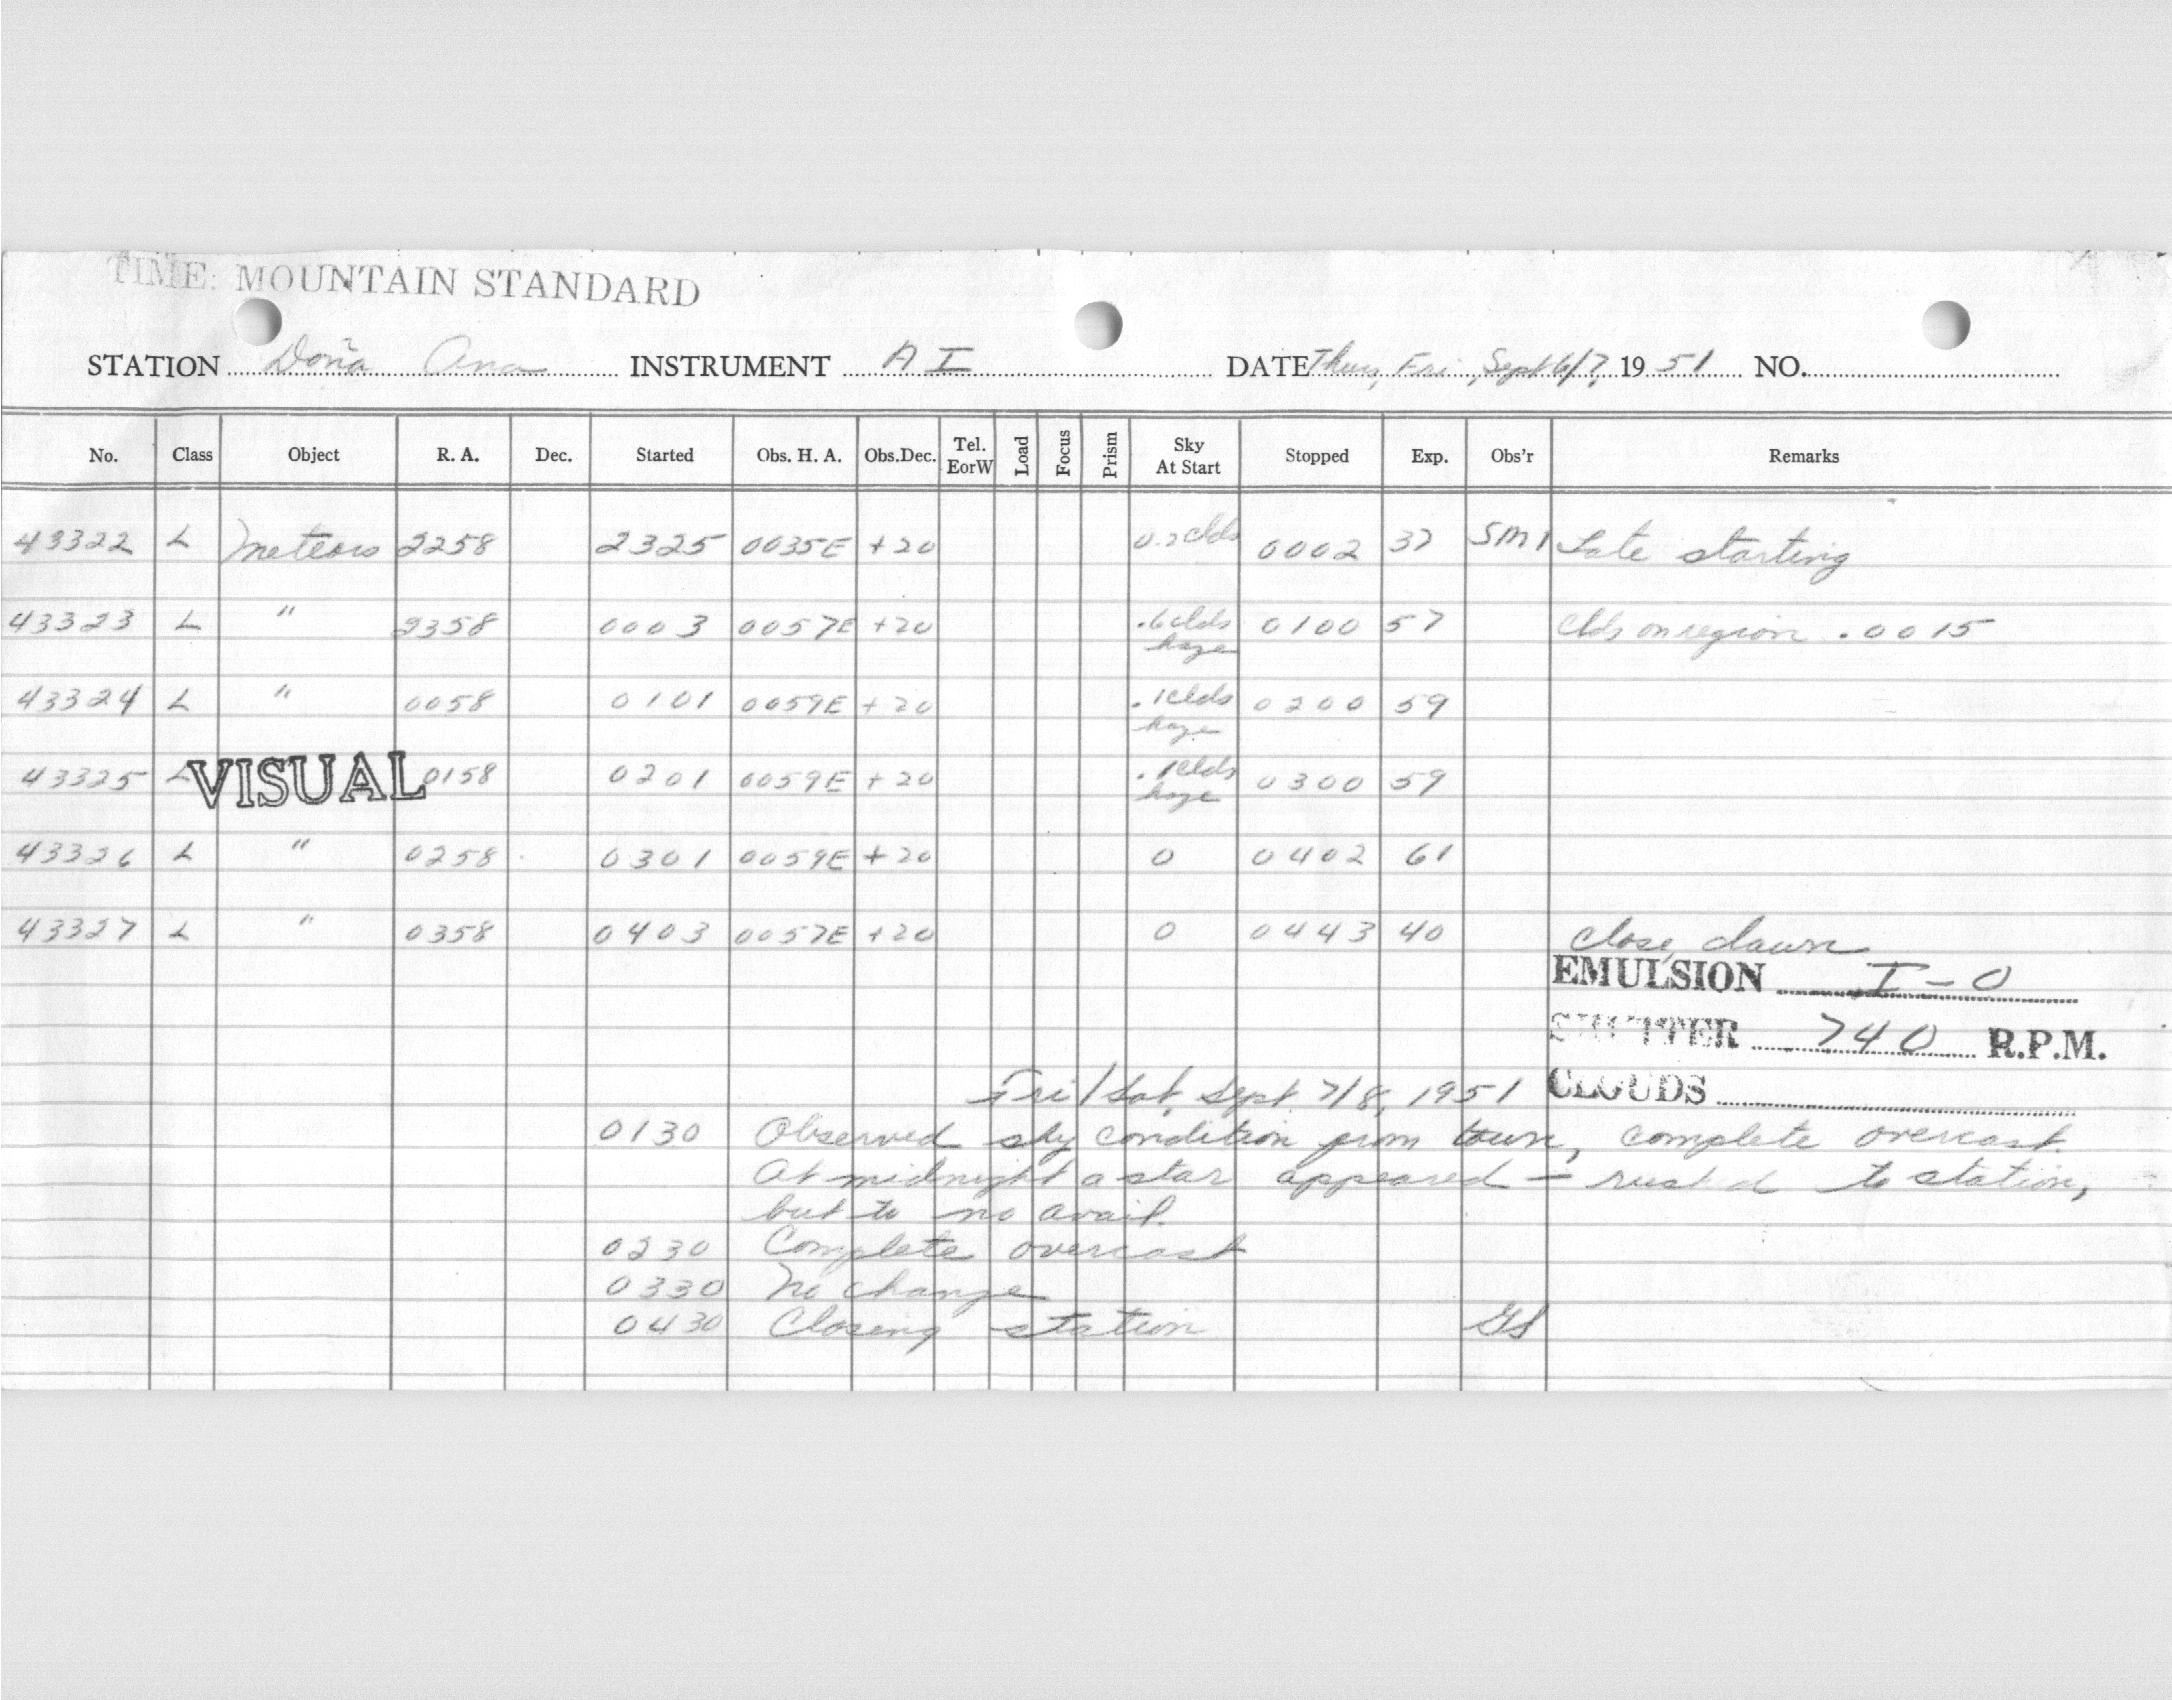 TIME: MOUNTAIN STANDARD
STATION Doña Ana INSTRUMENT A I DATE Thurs, Fri, Sept 6/7, 19 51 NO.
No. Class Object R. A. Dec. Started Obs. H. A. Obs.Dec. Tel. EorW Load Focus Prism Sky At Start Stopped Exp. Obs'r Remarks
43322 L Meteors 2258 2325 0035E +20 clds 0002 37 SM1 Late starting
43323 L " 2358 0003 0057E +20 .6 clds haze 0100 57 Clds on region .0015
43324 L " 0058 0101 0059E +20 .1 clds haze 0200 59
43325 L VISUAL 0158 0201 0059E +20 .1 clds haze 0300 59
43326 L " 0258 0301 0059E +20 0 0402 61
43327 L " 0358 0403 0057E +20 0 0443 40 Close, dawn
EMULSION I-O
SHUTTER 740 R.P.M.
CLOUDS
Fri/Sat, Sept 7/8, 1951
0130 Observed sky condition from town, complete overcast.
At midnight a star appeared — rushed to station,
but to no avail.
0230 Complete overcast
0330 No change
0430 Closing station GS